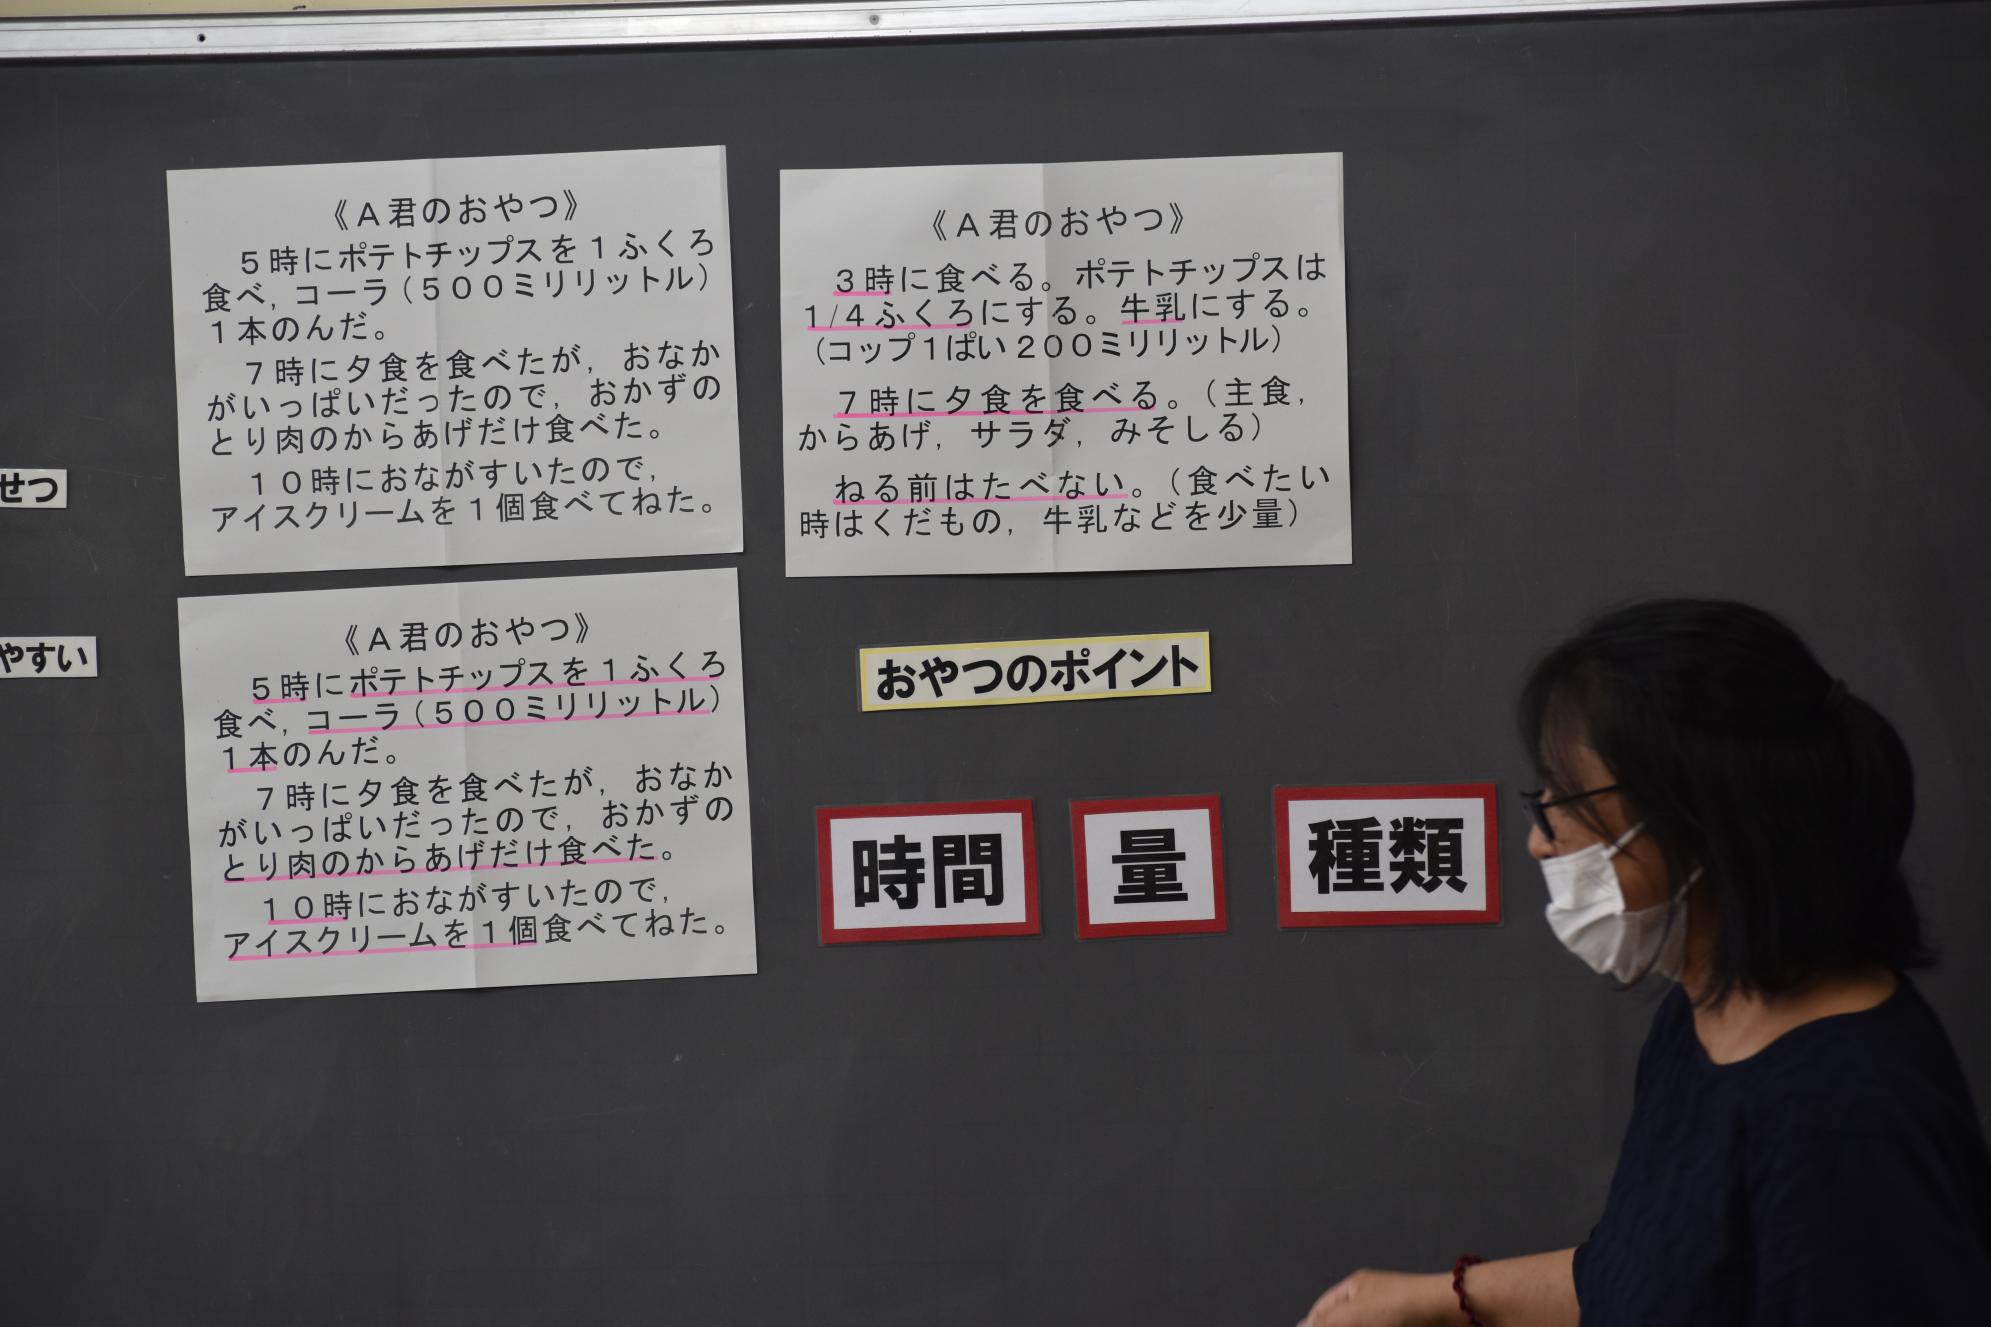 せつ
やすい
《A君のおやつ》
5時にポテトチップスを1ふくろ
食べ，コーラ（500ミリリットル）
1本のんだ。
7時に夕食を食べたが，おなか
がいっぱいだったので，おかずの
とり肉のからあげだけ食べた。
10時におながすいたので，
アイスクリームを1個食べてねた。
《A君のおやつ》
5時にポテトチップスを1ふくろ
食べ，コーラ（500ミリリットル）
1本のんだ。
7時に夕食を食べたが，おなか
がいっぱいだったので，おかずの
とり肉のからあげだけ食べた。
10時におながすいたので，
アイスクリームを1個食べてねた。
《A君のおやつ》
3時に食べる。ポテトチップスは
1/4ふくろにする。牛乳にする。
（コップ1ぱい200ミリリットル）
7時に夕食を食べる。（主食，
からあげ，サラダ，みそしる）
ねる前はたべない。（食べたい
時はくだもの，牛乳などを少量）
おやつのポイント
時間 量 種類